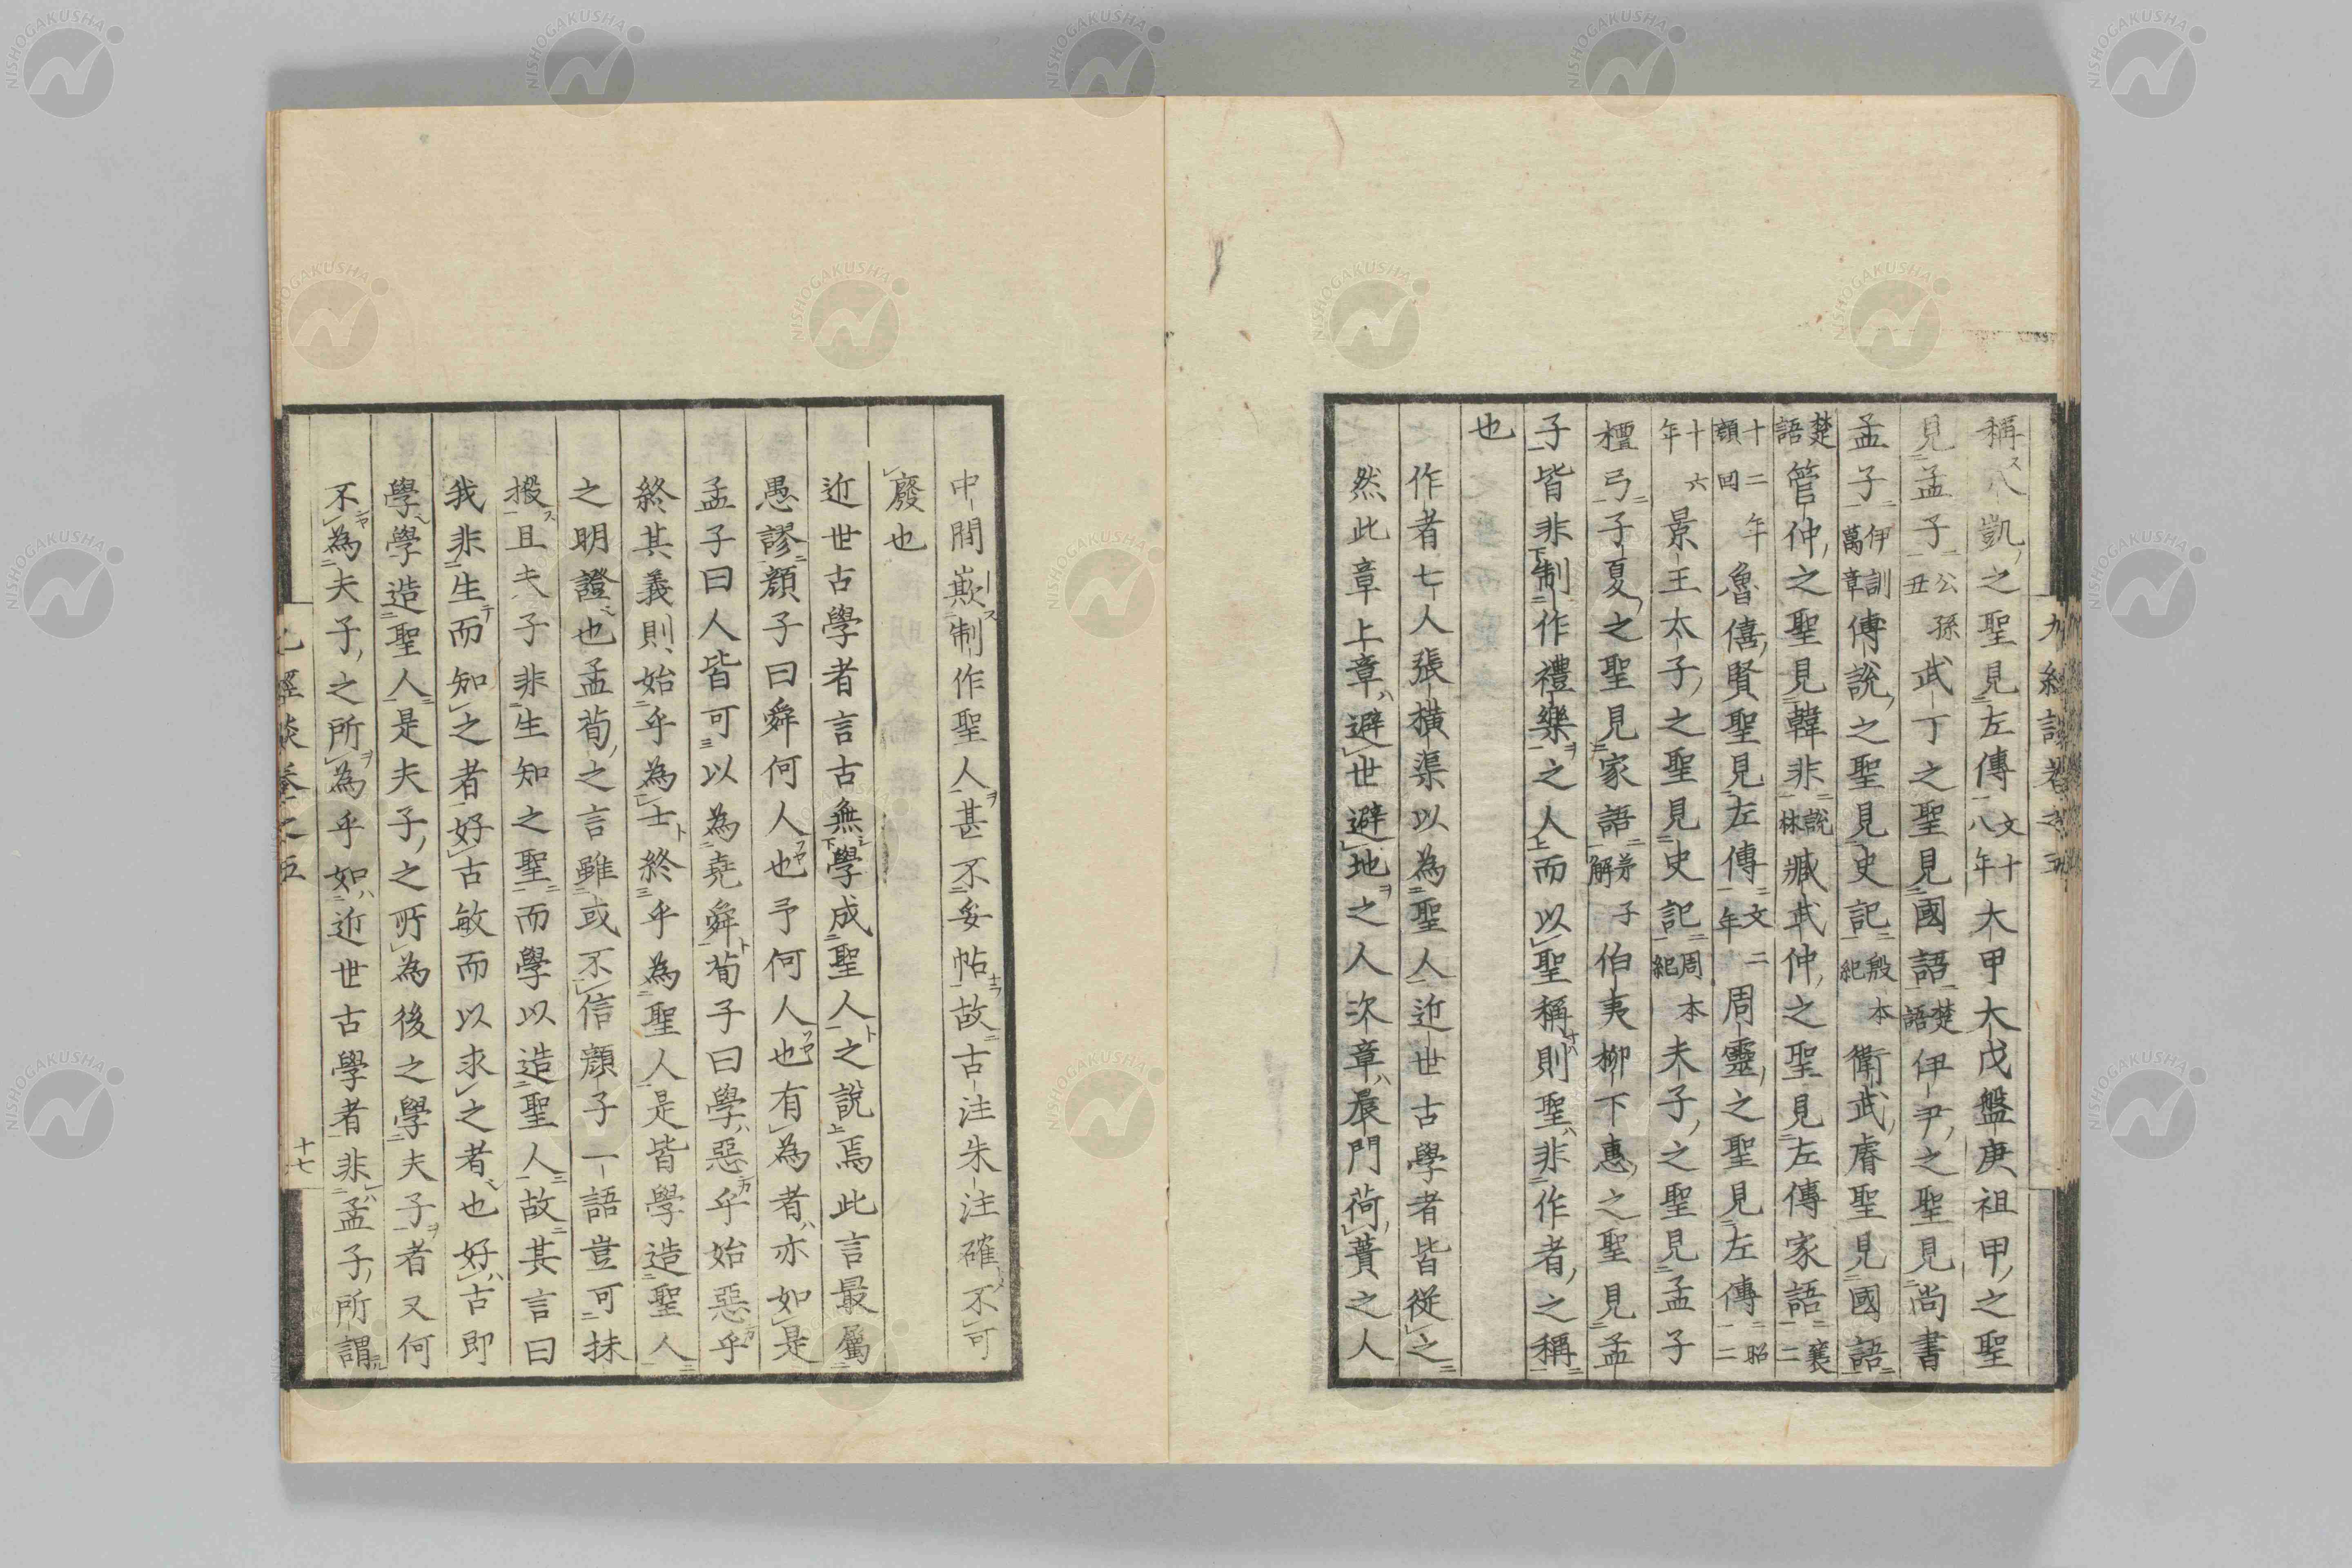 九經談卷之五
稱八凱之聖見左傳文十八年大甲大戊盤庚祖甲之聖
見孟子公孫丑武丁之聖見國語楚語伊尹之聖見尚書
孟子伊訓萬章傅說之聖見史記殷本紀衛武睿聖見國語
楚語管仲之聖見韓非說林臧武仲之聖見左傳家語襄二
十二年顏回魯僖賢聖見左傳文二年周靈之聖見左傳昭二
十六年景王太子之聖見史記周本紀夫子之聖見孟子
檀弓子夏之聖見家語弟子解伯夷柳下惠之聖見孟
子皆非制作禮樂之人而以聖稱則聖非作者之稱
也
作者七人張橫渠以為聖人近世古學者皆從之
然此章上章避世避地之人次章晨門荷蕢之人
中間欺制作聖人甚不妥帖故古注朱注確不可
廢也
近世古學者言古無學成聖人之說焉此言最屬
愚謬顏子曰舜何人也予何人也有為者亦如是
孟子曰人皆可以為堯舜荀子曰學惡乎始惡乎
終其義則始乎為士終乎為聖人是皆學造聖人
之明證也孟荀之言雖或不信顏子一語豈可抹
搬且夫子非生知之聖而學以造聖人故其言曰
我非生而知之者好古敏而以求之者也好古即
學學造聖人是夫子之所為後之學夫子者又何
不為夫子之所為乎如近世古學者非孟子所謂
九經談卷之五
十七
NISHOGAKUSHA